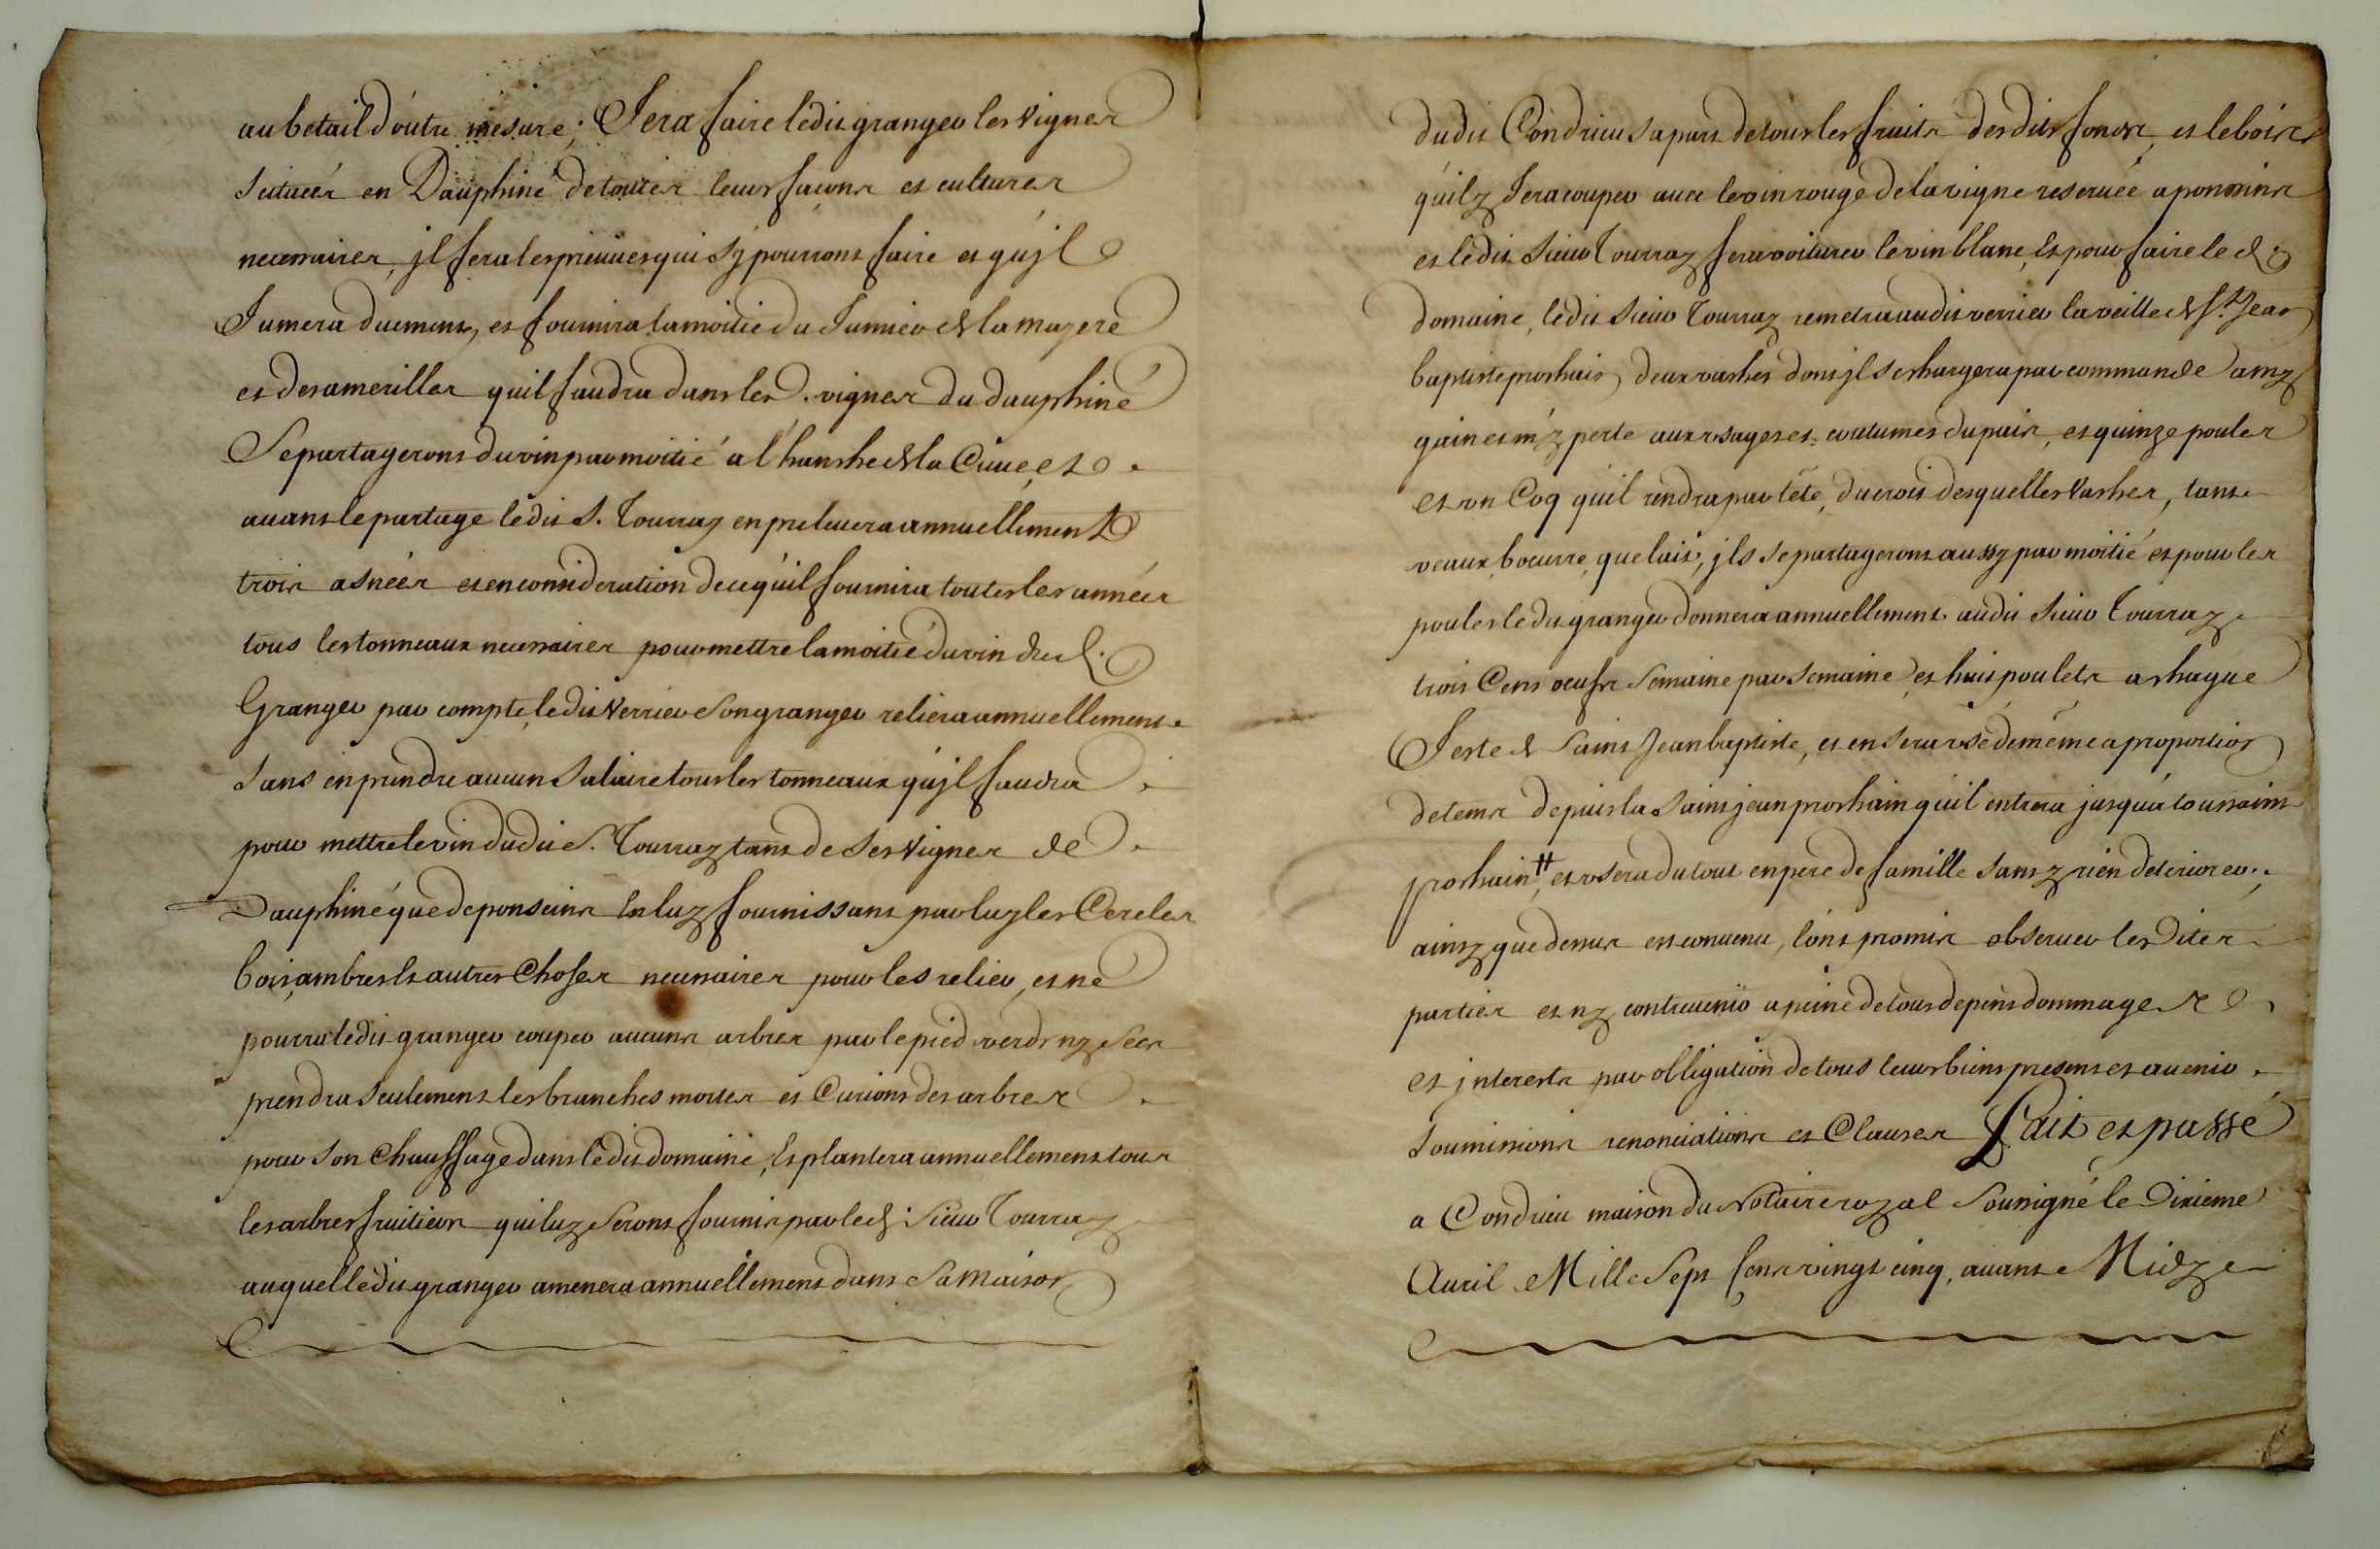 au betail d'outre mesure; Fera faire ledit granger les vignes
scituées en Dauphiné de toutes leurs façons et cultures
necessaires, jl fera les preuues qui sy pourront faire et qu'jl
fumera duement, et fournira la moitié du fumier & la mazere
et des amerilles quil faudra dans lesd. vignes du dauphiné
Se partageront du vin par moitié a l'hanche & la Cuue, et
auant le partage ledit S. Tourraz en preleuera annuellement
trois asnées et en consideration de ce qu'il fournira toutes les années
tous les tonneaux necessaires pour mettre la moitié du vin dud.
Granger par compte, ledit Verrier son granger reliera annuellement
sans en prendre aucun salaire tous les tonneaux qu'jl faudra
pour mettre le vin dudit S. Tourraz tant de ses vignes de
Dauphiné que de ponsains En luy fournissant par luy les Cercles
bois, ambres Et autres Choses necessaires pour les relier, et ne
pourra ledit granger couper aucuns arbres par le pied verds ny secs
prendra seulement les branches mortes et Curions des arbres
pour son Chauffage dans ledit domaine, Et plantera annuellement tous
les arbres fruitiers qui luy seront fournis par led. sieur Tourraz
auquel ledit granger amenera annuellement dans sa Maison
dudit Condrieu sa part de tous les fruits desdits fonds, et le bois
qu'ilz fera couper auec le vin rouge de la vigne reseruée a ponssins
et ledit sieur Tourraz fera voiturer le vin blanc, Et pour faire led.
domaine, ledit sieur Tourraz remetra audit verrier la veille & St. Jean
baptiste prochain deux vaches dont jl se chargera par commande a my
gain et my perte aux vsages et coutumes du pais, et quinze poules
et vn Coq quil rendra par tête, du crois desquelles vaches, tant
veaux, boeurre, que lait, jls se partageront aussy par moitié et pour les
poules ledit granger donnera annuellement audit sieur Tourraz
trois Cens oeufs semaine par semaine et huit poulets a chaque
Feste & Saint Jean baptiste, et en sera vsé de méme a proportion
de tems depuis la Saint jean prochain quil entrera jusqu'a toussaint
prochain #, et vsera du tout en pere de famille sans y rien deteriorer.
ainsy que dessus est conuenu, l'ont promis obseruer lesdites
parties et ny contreuenir a peine de tous depens dommages
et jnterests par obligation de tous leurs biens presens et auenir
soumissions renonciations et Clauses Fait et passé
a Condrieu maison du Notaire royal soussigné le Dixieme
Auril Mille Sept Cens vingt cinq, auant Midy